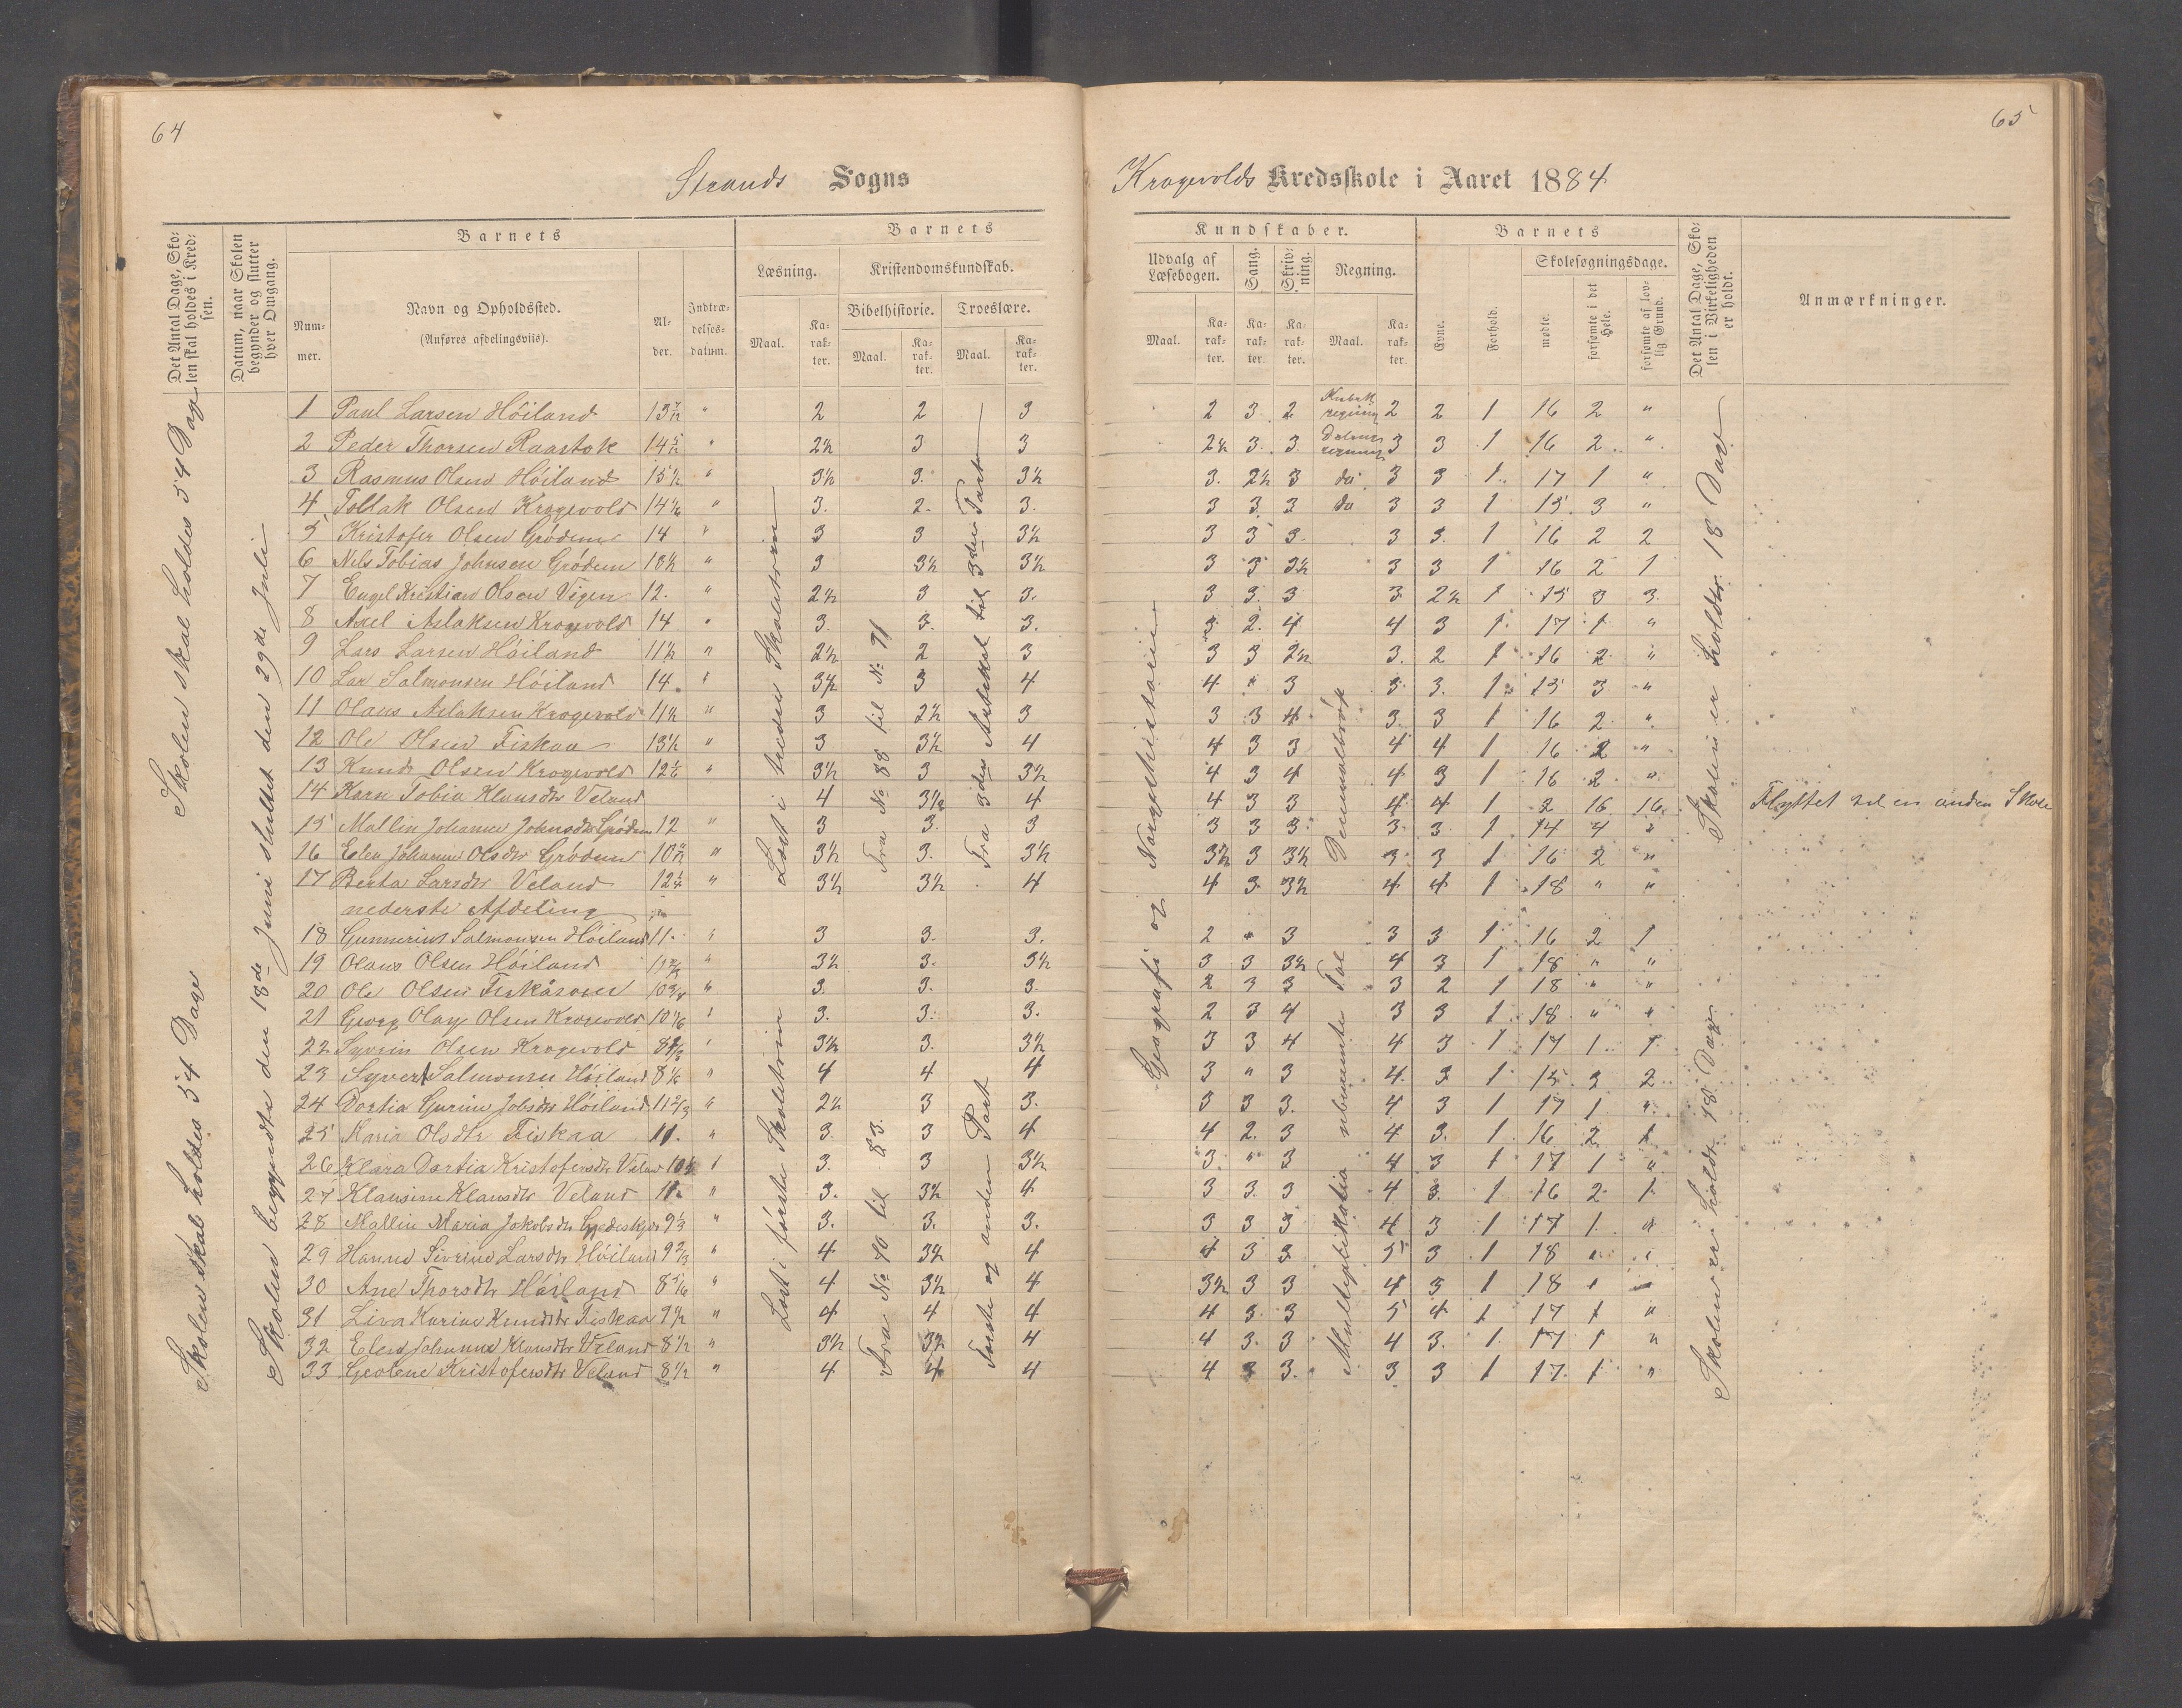 64
65
Strands Sogns
Krogevolds Kredsskole i Aaret 1884
Det Antal Dage, Skolen skal holdes i Kredsen.
Datum, naar Skolen begynder og slutter hver Omgang.
Barnets
Nummer.
Navn og Opholdssted.
(Anføres afdelingsviis).
Alder.
Indtrædelsesdatum.
Barnets
Læsning.
Maal.
Karakter.
Kristendomskundskab.
Bibelhistorie.
Maal.
Karakter.
Troeslære.
Maal.
Karakter.
Kundskaber.
Udvalg af Læsebogen.
Maal.
Karakter.
Sang.
Karakter.
Skrivning.
Karakter.
Regning.
Maal.
Karakter.
Barnets
Evne.
Forhold.
Skolesøgningsdage.
mødte.
forsømte i det Hele.
forsømte af lovlig Grund.
Det Antal Dage, Skolen i Virkeligheden er holdt.
Anmærkninger.
Skolen skal holdes 54 Dage
Skolen skal holdes 54 Dage
Skolen begyndte den 18de Juni sluttet den 29de Juli
Læst i tredie Skoletrin
Fra No 88 til No 71
Fra 3die Artikkel til 3die Part
Læst i første Skoletrin
Fra No 40 til 83
Første og anden Part
Geografi og Norgeshistorie
Decimalbrøk
Multiplikation ubenævnte Tal
Skolen er holdt 18 Dage
Skolen er holdt 18 Dage
1 Paul Larsen Höiland 13 7/12 " 2 2 3 2 3 2 2 2 1 16 2 "
2 Peder Thorsen Raastok 14 5/12 " 2½ 3 3 2½ 3. 3. 3 3 1 16 2 "
3 Rasmus Olsen Höiland 15½ " 3½ 3. 3½ 3. 2½ 3 do 3 3 1 17 1 "
4 Tollak Olsen Krogevold 14 1/6 " 3. 2. 3. 3 3 3 do 3 3 1 15 3 "
5 Kristofer Olsen Grödem 14 " 3 3 3½ 3 3 3 3 3. 1 16 2 2
6 Nils Tobias Johnsen Grödem 13½ " 3 3½ 3½ 3 3 3½ 3 3 1 16 2 1
7 Engel Kristian Olsen Vigen 12. " 2½ 3 3. 3 3. 3 3 2½ 1 15 3 3
8 Axel Aslaksen Krogevold 14 " 3 3. 3. 3 2. 4 4 3 1 17 1 "
9 Lars Larsen Höiland 11½ " 2½ 2 3 3 3 2½ 3. 2 1 16 2 "
10 Lar Salmonsen Höiland 14. " 3½ 3 4 4 " 3 3 3. 1 15 3 "
11 Olaus Aslaksen Krogevold 11½ " 3 2½ 3 3 3 4 3 3 1 16 2 "
12 Ole Olsen Fiskaa 13½ " 3 3½ 4 4 3 3 4 4 1 16 2 "
13 Knud Olsen Krogevold 12 1/6 " 3½ 3 3½ 4 3 4 4 3 1 16 2 "
14 Karn Tobia Klausdtr Veland 4 3½ 4 4 3 3 4 4 1 2 16 16 Flyttet til en anden Skole
15 Mallin Johanne Johnsdtr Grödem 12 " 3 3. 3 3 3 3 3 3 1 14 4 2
16 Elen Johanne Olsdtr Grödem 10 " 3½ 3. 3½ 3½ 3 3½ 3 3 1 16 2 "
17 Berta Larsdtr Veland 12¼ " 3½ 3½ 4 4 3 3½ 4 4 1 18 " "
nederste Afdeling
18 Gunnerius Salmonsen Höiland 11. " 3 3. 3. 2 " 3 3 3 1 16 2 1
19 Olaus Olsen Höiland " 3½ 3. 3½ 3 3 3½ 4 3 1 18 " "
20 Ole Olsen 10¾ " 3. 3. 3. 2 3 3 3 2 1 18 " "
21 Georg Olay Olsen Krogevold 10 1/6 " 3. 3. 3. 2 3 4 3 3 1 18 " "
22 Olsen Krogevold " 3½ 3. 3½ 3 3 4 4 3 1 17 1 1
23 Syvert Salmonsen Höiland 8 1/6 " 4 4 4 3 " 3 4 3 1 15 3 2
24 Dortia Gurine Jobsdtr Höiland 11 2/3 " 2½ 3 3. 3 3 3. 4 3 1 17 1 "
25 Maria Olsdtr Fiskaa 11. " 3. 3 4 4 2. 3 4 3. 1 16 2 1
26 Klara Dortia Kristofersdtr Veland " 3. 3 3½ 3 " 3 4 3 1 17 1 "
27 Klausine Klausdtr Veland 11 " 3. 3½ 4 3 3. 3 4 3. 1 16 2 1
28 Mallin Maria Jakobsdtr 9⅓ " 3. 3. 3. 3 3 3 4 3 1 17 1 "
29 Hanne Sivrine Larsdtr Höiland 9 2/3 " 4 3½ 4 4 3 3 5 3 1 18 " "
30 Ane Thorsdtr Höiland " 4 3½ 4 3½ 3 3 4 3 1 18
31 Liva Karine Knudsdtr Fiskaa 9½ " 4 4 4 4 3 3 5 4 1 17 1 "
32 Elen Johanna Klausdtr Veland 8½ " 3½ 3½ 4 4 3. 3 4 3. 1 17 1 "
33 Geolene Kristofersdtr Veland 8½ " 4 4 4 4 3 3. 3 3 1 17 1 "